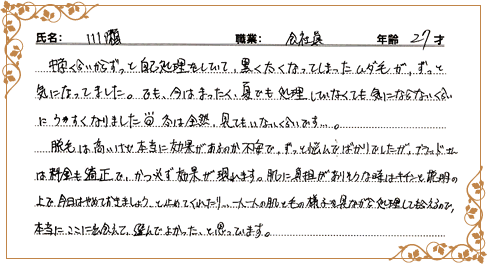 氏名： 川瀬 職業： 会社員 年齢 27 才
中学くらいからずっと自己処理をしていて、黒く太くなってしまったムダ毛が、ずっと
気になってました。でも、今はまったく、夏でも処理していなくても気にならないくらい
にうすくなりました 冬は全然、見てもいないくらいです…。
脱毛は高いけど本当に効果があるのか不安で、ずっと悩んでばかりでしたが、
は料金も適正で、かつ必ず効果が現れます。肌に負担がありそうな時はキチンと説明の
上で、今日はやめておきましょう、と止めてくれたり…、一人一人の肌と毛の様子を見ながら処理して給えるので、
本当にここに出会えて、選んでよかった、と思っています。